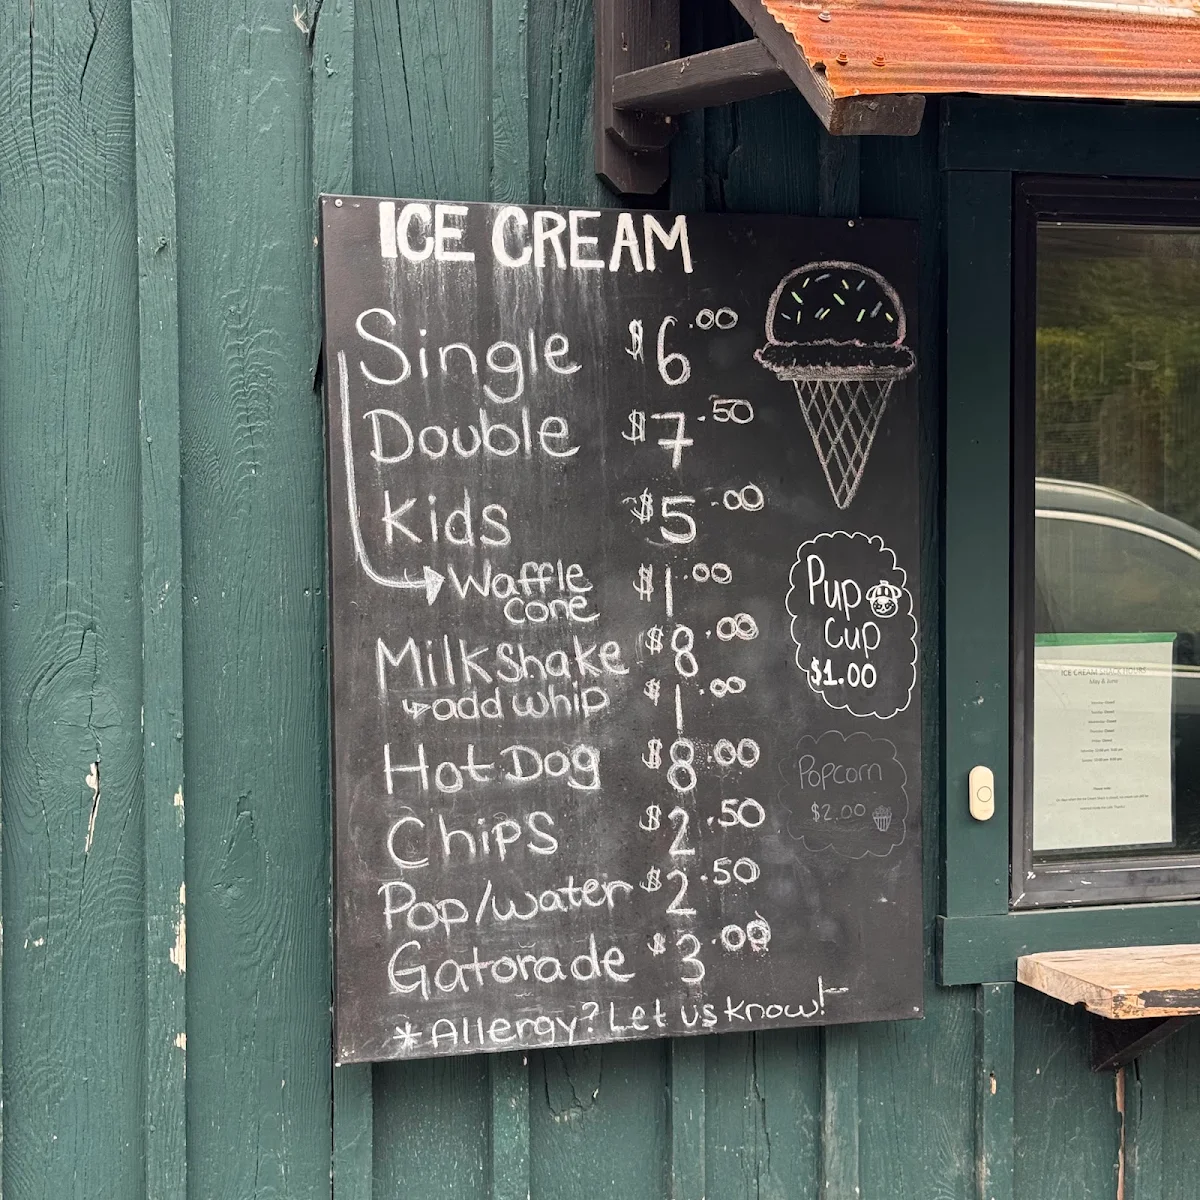 ICE CREAM
Single $6.00
Double $7.50
Kids $5.00
Waffle $1.00
cone
Milkshake $8.00
add whip $1.00
Hot Dog $8.00
Chips $2.50
Pop/water $2.50
Gatorade $3.00
*Allergy? Let us know!
Pup
Cup
$1.00
Popcorn
$2.00
ICE CREAM SHACK HOURS
May & June